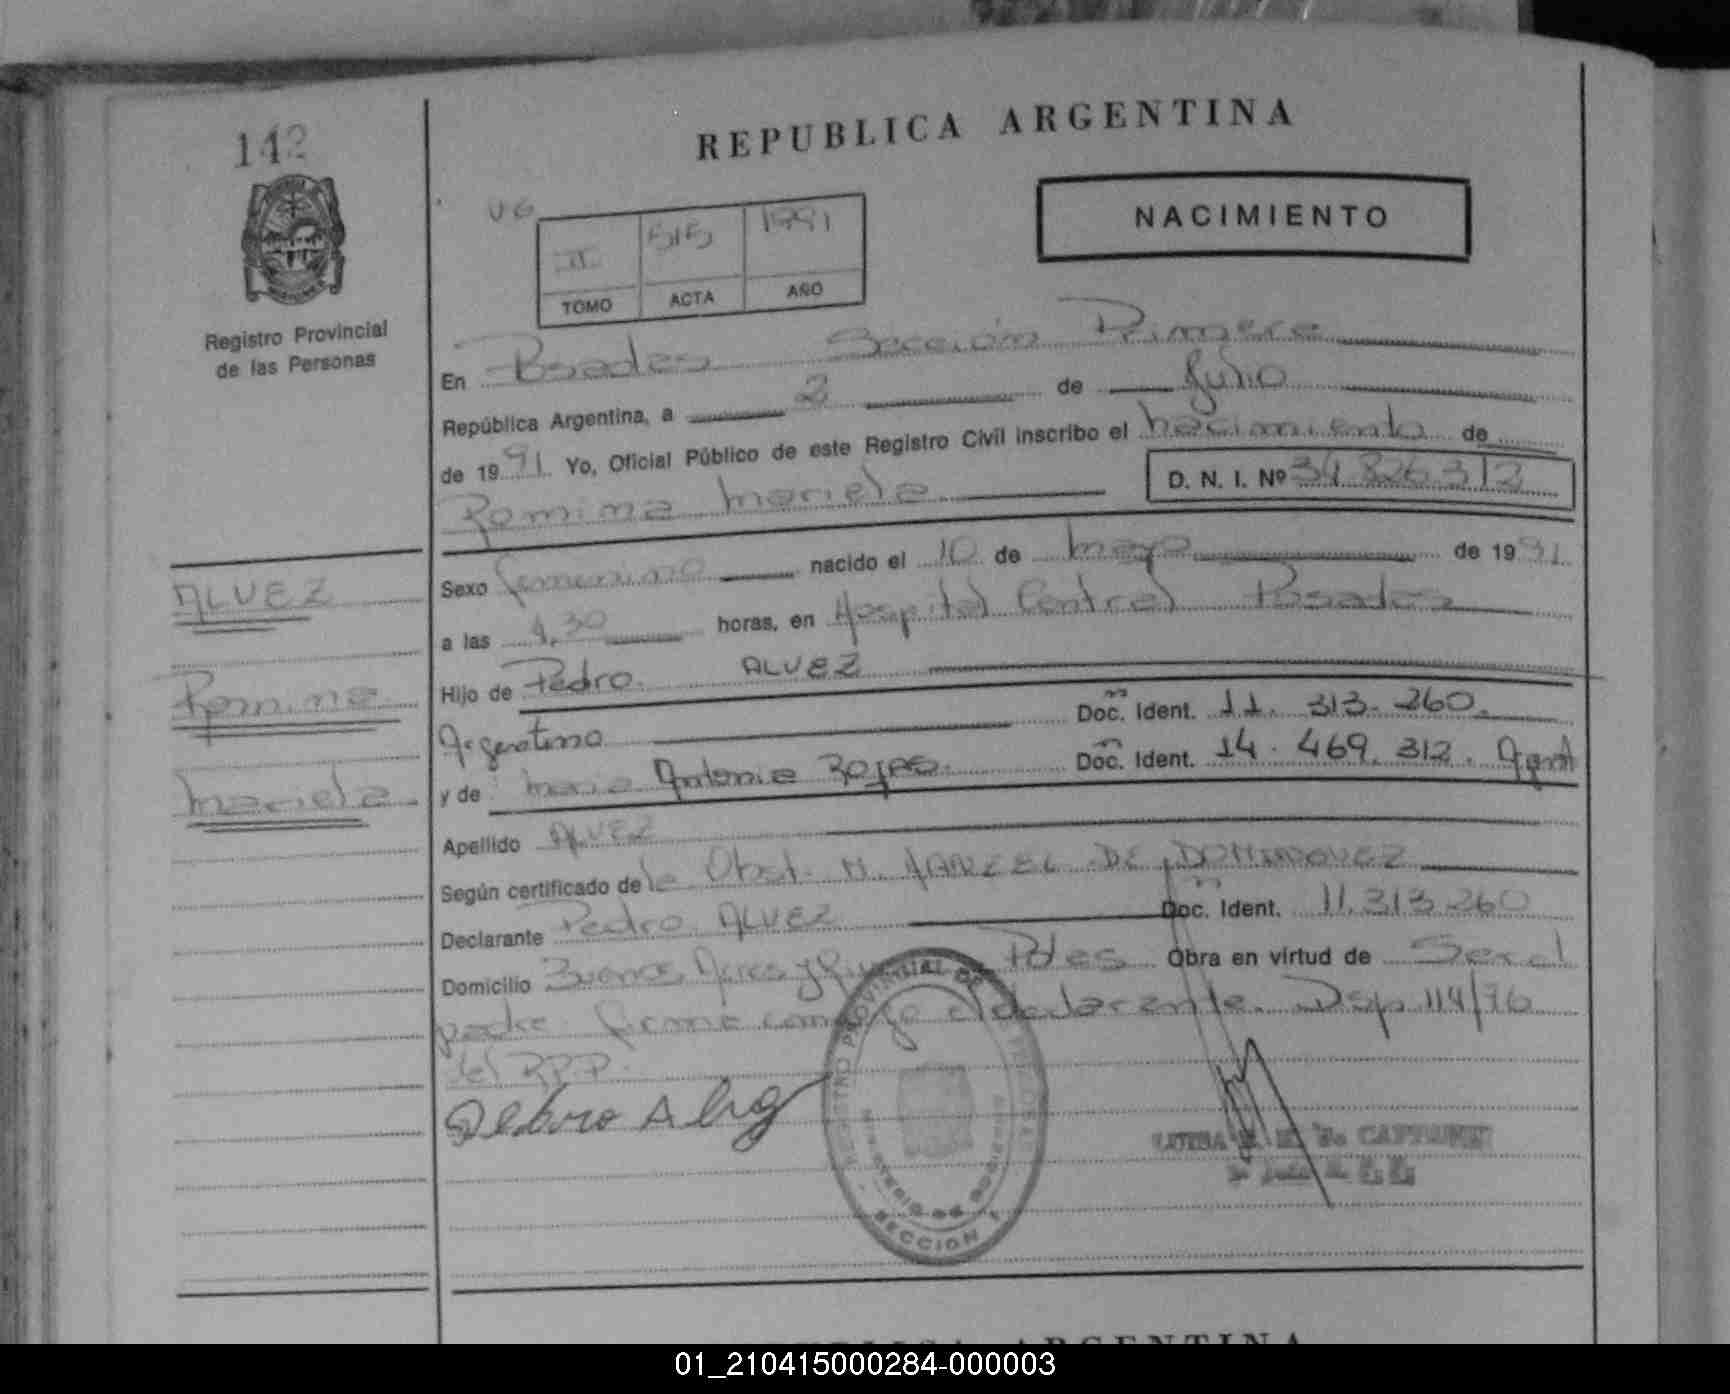 142
REPUBLICA ARGENTINA
NACIMIENTO
II 515 1991
TOMO ACTA AÑO
Registro Provincial
de las Personas
En Posadas Sección Primera
República Argentina, a 2 de Julio
de 1991 Yo, Oficial Público de este Registro Civil inscribo el nacimiento de
Romina Mariela D. N. I. Nº 34.826.312
ALVEZ
Romina
Mariela.
Sexo femenino nacido el 10 de mayo de 1991
a las 4,30 horas, en Hospital Central Posadas
Hijo de Pedro ALVEZ
Argentino Doc. Ident. 11.313.260.
y de Maria Antonia Rojas. Doc. Ident. 14.469.312. Argent
Apellido ALVEZ
Según certificado de la Obst. M. DE DOMINGUEZ
Declarante Pedro ALVEZ Doc. Ident. 11.313.260
Domicilio Buenos Aires y Pdas Obra en virtud de Ser el
padre. firma conmigo el declarante. Disp. 114/76
del R.P.P.
REGISTRO PROVINCIAL DE LAS PERSONAS
MINISTERIO DE GOBIERNO
SECCION 1
LUISA
REPUBLICA ARGENTINA
01_210415000284-000003